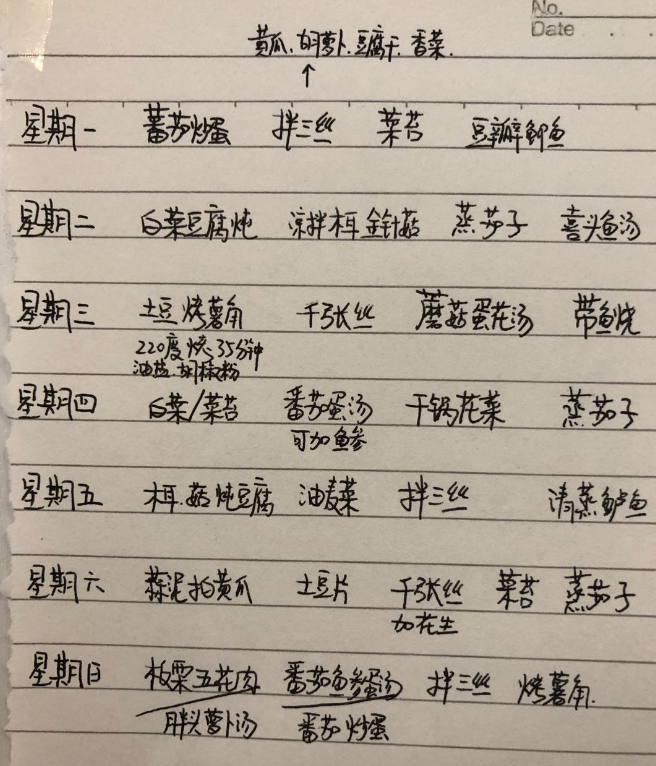 No.
Date
黄瓜.胡萝卜.豆腐干.香菜.
↑
星期一 蕃茄炒蛋 拌三丝 菜苔 豆瓣鲫鱼
星期二 白菜豆腐炖 凉拌木耳金针菇 蒸茄子 喜头鱼汤
星期三 土豆烤薯角 千张丝 蘑菇蛋花汤 带鱼烧
220度烤35分钟
油盐.胡椒粉
星期四 白菜/菜苔 番茄蛋汤 干锅花菜 蒸茄子
可加鱼参
星期五 木耳.菇炖豆腐 油麦菜 拌三丝 清蒸鲈鱼
星期六 蒜泥拍黄瓜 土豆片 千张丝 菜苔 蒸茄子
加花生
星期日 板栗五花肉 番茄鱼参蛋汤 拌三丝 烤薯角.
胖头萝卜汤 番茄炒蛋